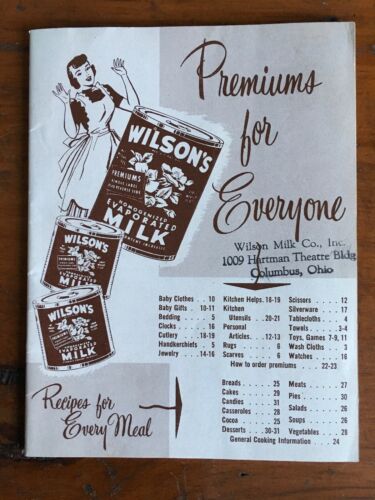 Premiums
for
Everyone
WILSON'S
PREMIUMS
HOMOGENIZED
EVAPORATED
MILK
Wilson Milk Co., Inc.
1009 Hartman Theatre Bldg
Columbus, Ohio
WILSON'S
MILK
WILSON'S
EVAPORATED
MILK
Baby Clothes . . 10
Baby Gifts . 10-11
Bedding . . . . 5
Clocks . . . . 16
Cutlery . . 18-19
Handkerchiefs . 5
Jewelry . . 14-16
Kitchen Helps. 18-19
Kitchen
Utensils . . 20-21
Personal
Articles . . 12-13
Rugs . . . . 6
Scarves . . . 6
Scissors . . . . 12
Silverware . . 17
Tablecloths . . 4
Towels . . . . 3-4
Toys, Games 7-9, 11
Wash Cloths . . 3
Watches . . . 16
How to order premiums . . . 22-23
Recipes for
Every Meal
Breads . . . . 25
Cakes . . . . 29
Candies . . . 31
Casseroles . . . 28
Cocoa . . . . 25
Desserts . . 30-31
Meats . . . . 27
Pies . . . . 30
Salads . . . . 26
Soups . . . . 26
Vegetables . . . 28
General Cooking Information . . . 24